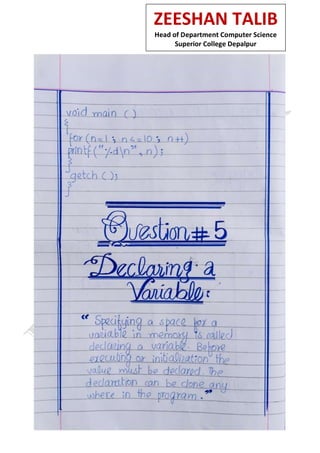 ZEESHAN TALIB
Head of Department Computer Science
Superior College Depalpur
void main ()
{
for (n=1 ; n<=10 ; n++)
printf ("%d\n", n);
}
getch ();
}
Question # 5
Declaring a
Variable:
" Specifying a space for a
variable in memory is called
declaring a variable. Before
executing or initialization the
value must be declared. The
declaration can be done any
where in the program. "